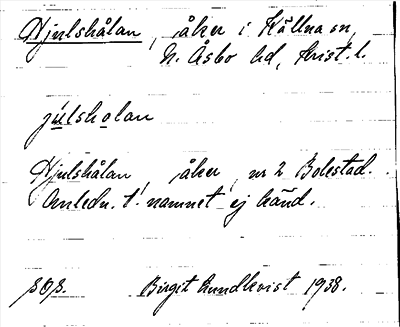 Hjulshålan, åker i Källna sn,
N. Åsbo hd, Krist. l.
júlsholan
Hjulshålan, åker, nr 2 Bolestad.
Anledn. t. namnet ej känd.
Birgit Lundkvist 1938.